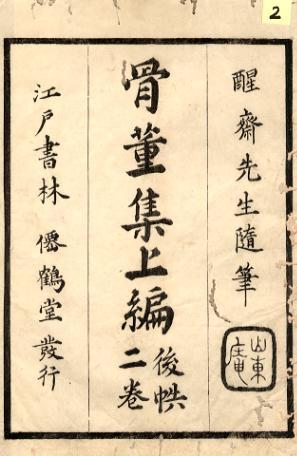 2
醒齋先生隨筆
山東庵
骨董集上編
後帙
二卷
江戸書林 僊鶴堂發行